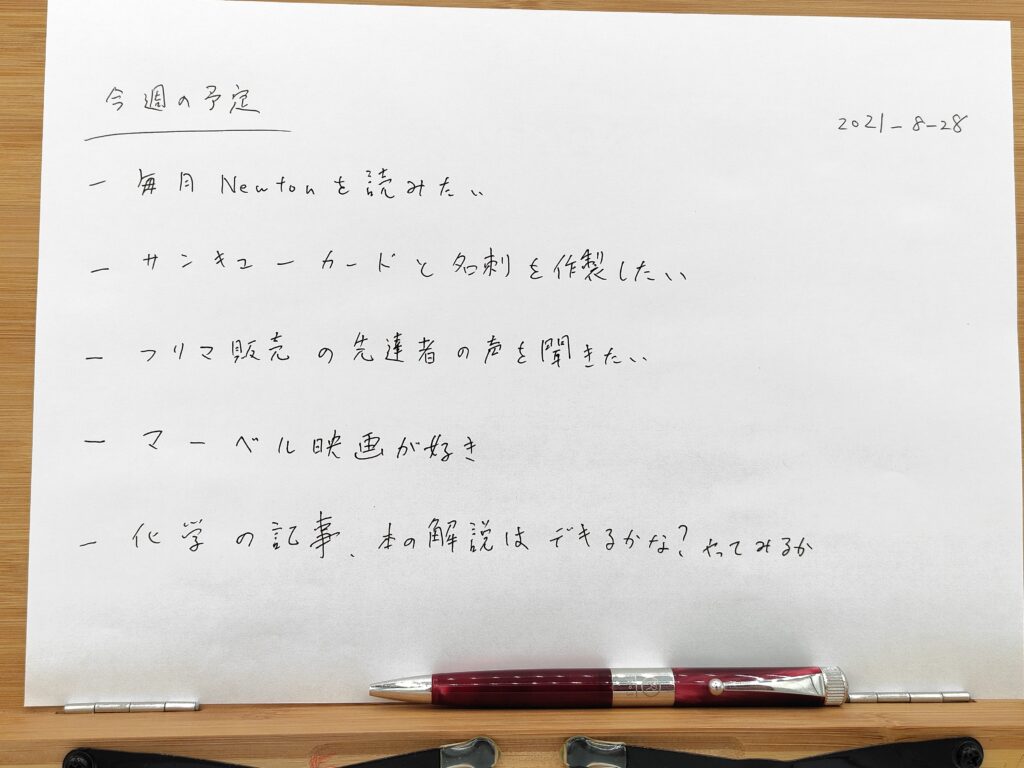 今週の予定
2021-8-28
- 毎月Newtonを読みたい
- サンキューカードと名刺を作製したい
- フリマ販売の先達者の声を聞きたい
- マーベル映画が好き
- 化学の記事、本の解説はできるかな?やってみるか